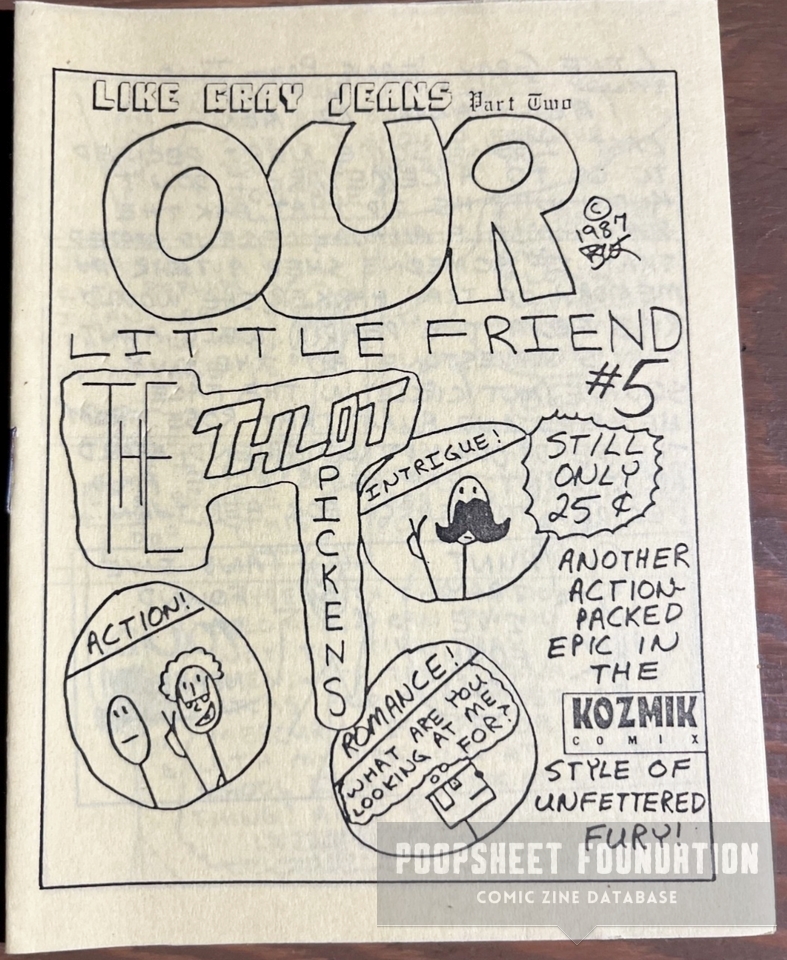 LIKE GRAY JEANS Part Two
OUR
© 1987
LITTLE FRIEND
#5
THE THLOT
PICKENS
INTRIGUE!
STILL
ONLY
25¢
ANOTHER
ACTION-
PACKED
EPIC IN
THE
KOZMIK
COMIX
STYLE OF
UNFETTERED
FURY!
ACTION!
ROMANCE!
WHAT ARE YOU
LOOKING AT ME
FOR?
POOPSHEET FOUNDATION
COMIC ZINE DATABASE